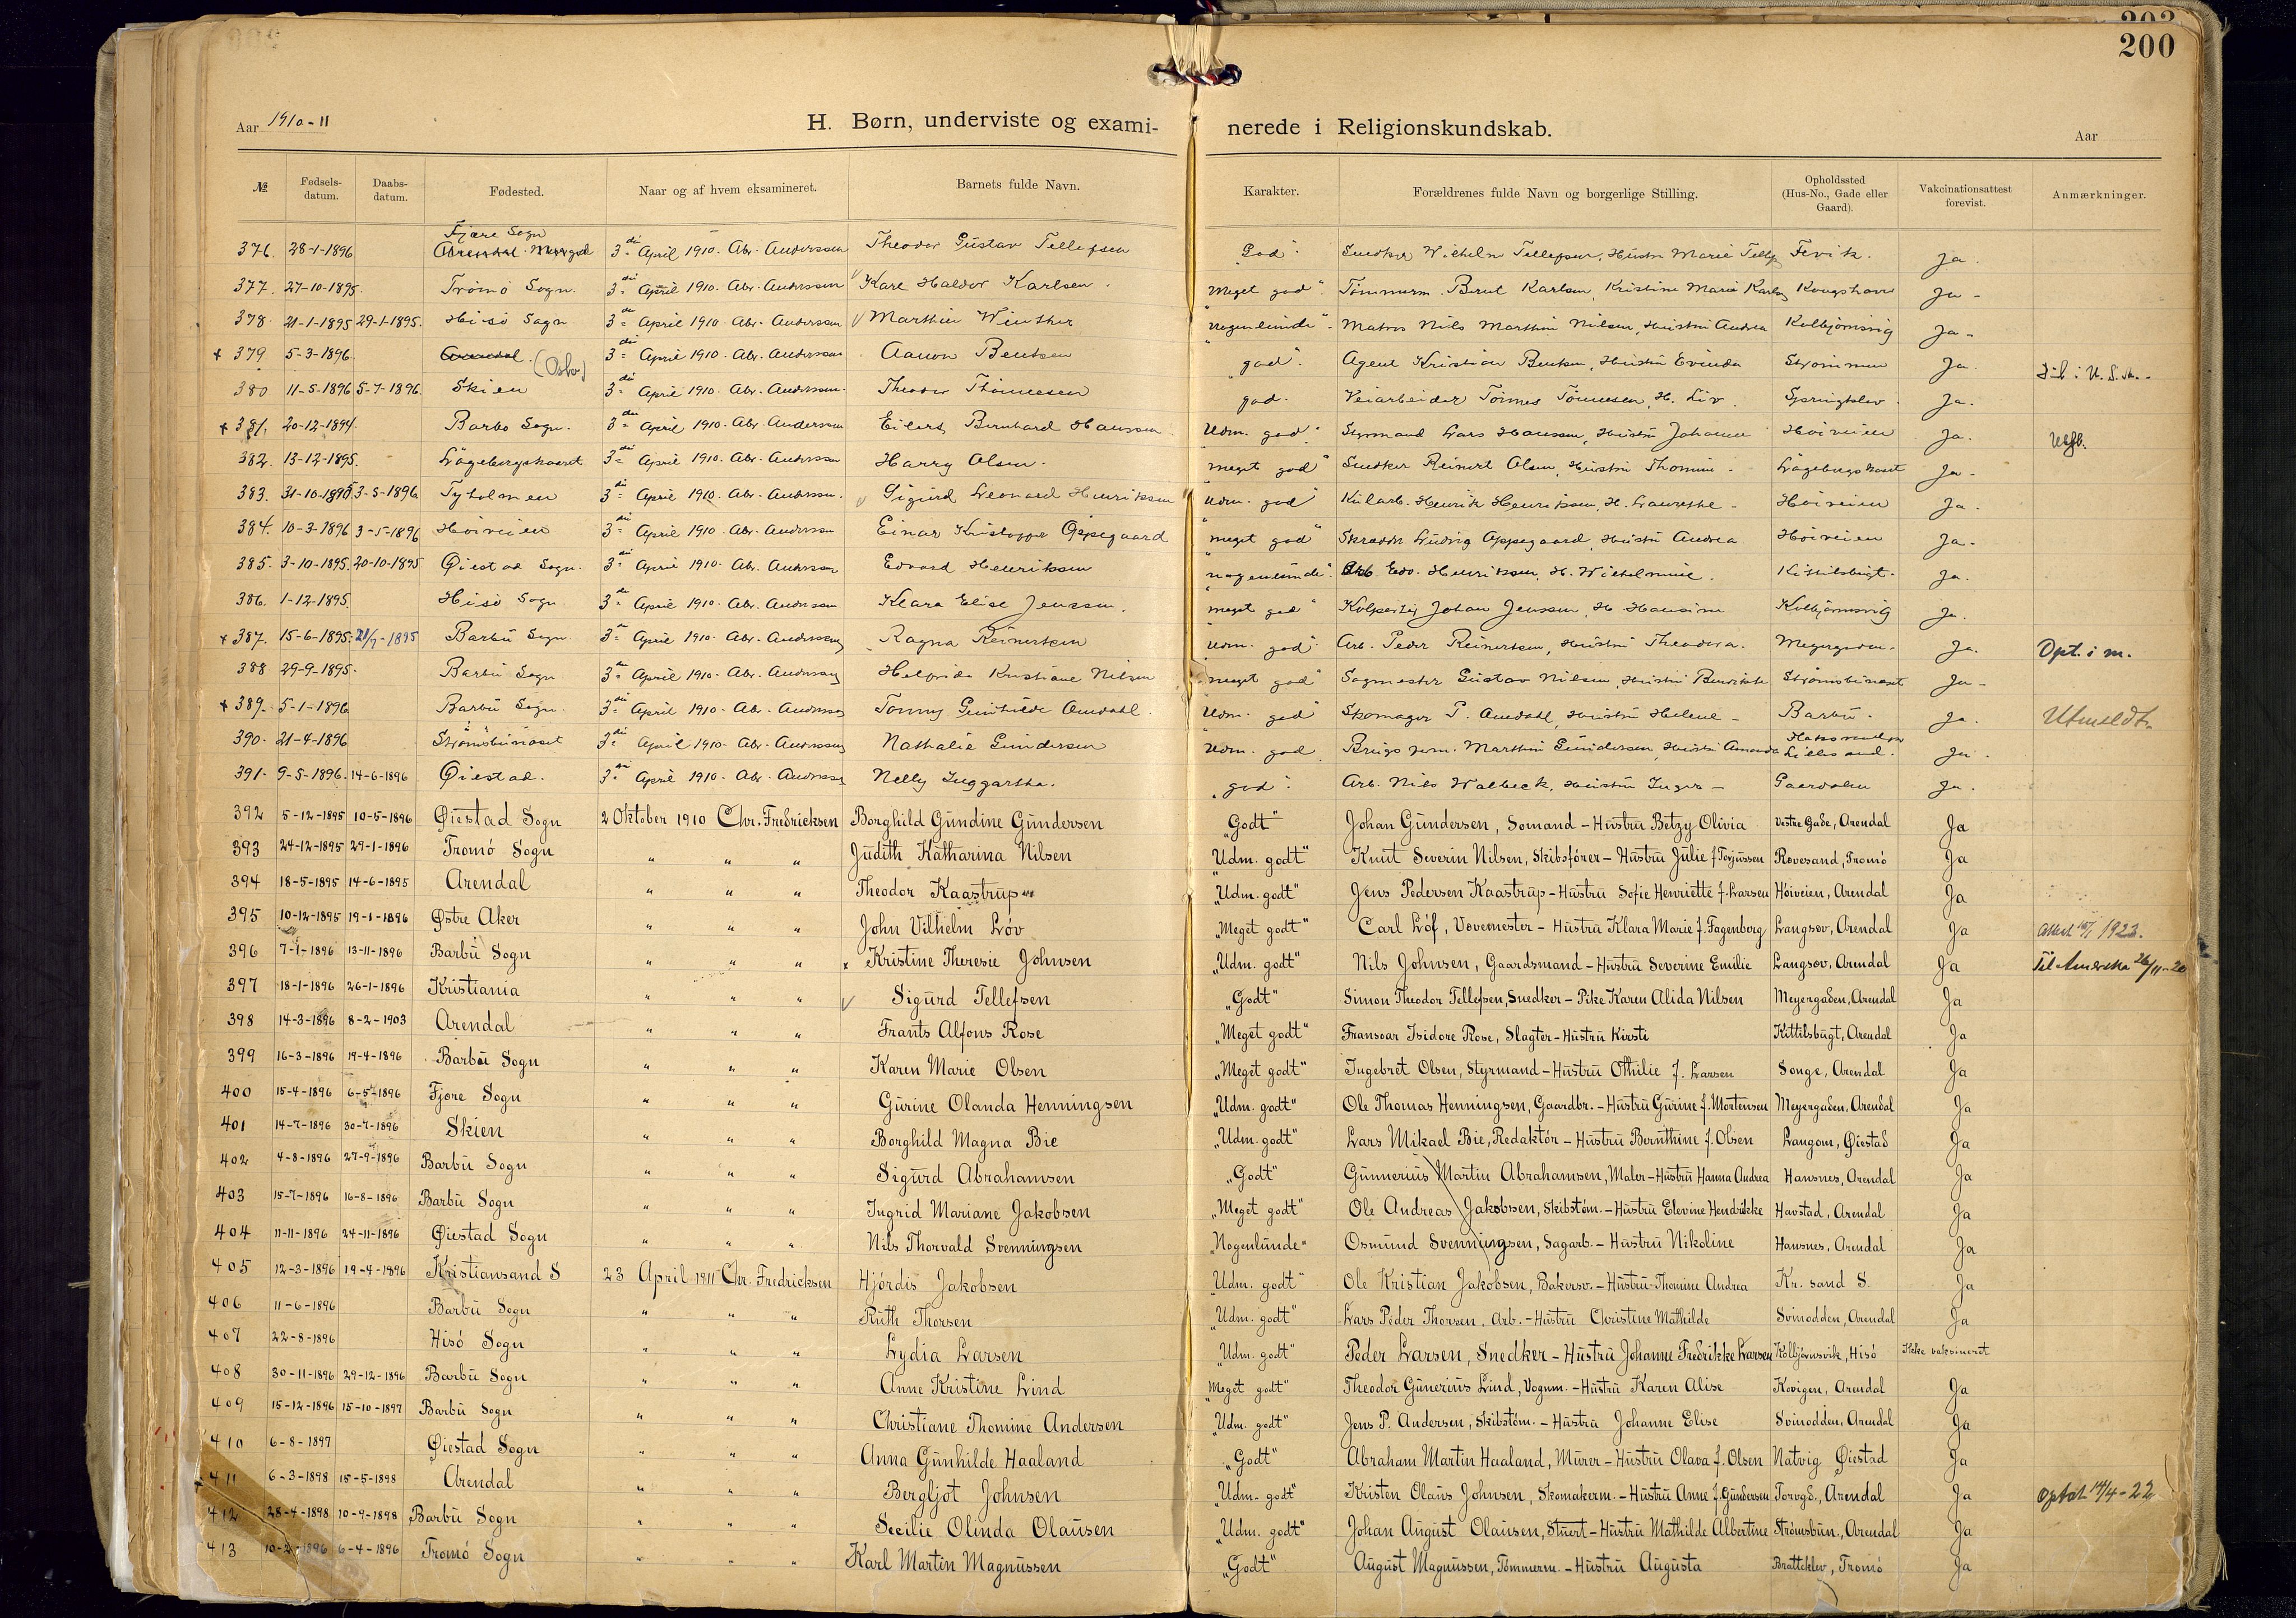 203
200
Aar 1910-11
H. Børn, underviste og exami- nerede i Religionskundskab.
Aar
№ Fødsels-datum. Daabs-datum. Fødested. Naar og af hvem eksamineret. Barnets fulde Navn. Karakter. Forældrenes fulde Navn og borgerlige Stilling. Opholdssted (Hus-No., Gade eller Gaard). Vakcinationsattest forevist. Anmærkninger.
Fjære Sogn
376. 28-1-1896 3die April 1910. Abr. Anderssen Theodor Gustav Tellefsen God". Snedker Vilhelm Tellefsen, Hustru Marie Tellefs Fevik. Ja.
377. 27-10-1895. Tromø Sogn. 3die April 1910. Abr. Anderssen Kare Haldor Karlsen. Meget god". Tømmerm. Bernt Karlsen, Kristine Marie Karlsen Kongshavn Ja -
378. 21-1-1895 29-1-1895. Hisø Sogn 3die April 1910. Abr. Anderssen Marthin Winther nogenlunde". Matros Nils Marthin Nilsen, Hustru Andrea Kolbjørnsvig Ja -
+ 379. 5-3-1896 Arendal. (Oslo) 3die April 1910. Abr. Anderssen Aanon Bentsen god". Agent Kristian Bentsen, Hustru Evinda Strømmen Ja.
380 11-5-1896 5-7-1896. Skien 3die April 1910. Abr. Anderssen. Theodor Thinnesen god. Veiarbeider Tønnes Tønnesen, H. Liv. Springklev. Ja.
+ 381. 20-12-1894. Barbo Sogn. 3die April 1910. Abr. Anderssen Eilert Bernhard Hanssen Udm. god". Styrmand Lars Hanssen, Hustru Johanne Høiveien Ja.
382. 13-12-1895. Længebergskaaret 3die April 1910. Abr. Anderssen Harry Olsen. meget god" Snedker Reinert Olsen, Hustru Thomine. Ja -
383. 31-10-1895 3-5-1896 Tyholmen 3die April 1910. Abr. Anderssen. Sigurd Leonard Henriksen Udm. god" Kularb. Henrik Henriksen, H. Laurethe - Høiveien Ja.
384. 10-3-1896 3-5-1896 Høiveien 3die April 1910. Abr. Anderssen Einar Kristoffer Oppegaard meget god" Skrædder Ludvig Oppegaard, Hustru Andrea Høiveien Ja.
385. 3-10-1895. 20-10-1895 Øiestad Sogn. 3die April 1910. Abr. Anderssen Edvard Henriksen nogenlunde". Arb. Edv. Henriksen, H. Wilhelmine. Kittilsbugt. Ja.
386. 1-12-1895. Hisø Sogn 3die April 1910. Abr. Anderssen Klara Elise Jenssen. meget god" Kolportør Johan Jenssen, H. Hansine Kolbjørnsvig Ja.
+ 387. 15-6-1895. 21/7-1895 Barbu Sogn. 3die April 1910. Abr. Anderssen Ragna Reinertsen Udm. god" Arb. Peder Reinertsen, Hustru Theodora. Meyergaden. Ja. Opt. i m.
388 29-9-1895. Barbu Sogn 3die April 1910. Abr. Anderssen Helfrida Kristiane Nilsen meget god" Sagmester Gustav Nilsen, Hustru Bendikte Strømsbunæset Ja -
+ 389. 5-1-1896 Barbu Sogn. 3die April 1910. Abr. Anderssen Tonny Gunhilde Amdahl Udm. god" Skomager P. Amdahl, Hustru Helene - Barbu. Ja. Utmeldt
390. 21-4-1896 Strømsbunæset 3die April 1910. Abr. Anderssen Nathalie Gundersen Udm. god Marthin Gundersen, Hustru Amanda Lillesand. Ja.
391. 9-5-1896. 14-6-1896 Øiestad. 3die April 1910. Abr. Anderssen Nelly Inggartha. god". Arb. Nils Walbeck, Hustru Inger - Gaardalen Ja.
392 5-12-1895 10-5-1896 Øiestad Sogn 2 Oktober 1910 Chr. Fredricksen Borghild Gundine Gundersen „Godt" Johan Gundersen, Somand - Hustru Betzy Olivia Vestre Gade, Arendal Ja
393 24-12-1895 29-1-1896 Tromö Sogn " " " Judith Katharina Nilsen „Udm. godt" Knut Severin Nilsen, Skibsförer - Hustru Julie f. Terjussen Revesand, Tromö Ja
394 18-5-1895 14-6-1895 Arendal " " " Theodor Kaastrup „Udm. godt" Jens Pedersen Kaastrup - Hustru Sofie Henriette f. Larsen Höiveien, Arendal Ja
395 10-12-1895 19-1-1896 Østre Aker " " " John Vilhelm Löv „Meget godt" Carl Löf, Vævemester - Hustru Klara Marie f. Fagenborg Langsæv, Arendal Ja Attest 10/7 1923.
396 7-1-1896 13-11-1896 Barbu Sogn " " " x Kristine Theresie Johnsen „Udm. godt" Nils Johnsen, Gaardsmand - Hustru Severine Emilie Langsæv, Arendal Ja Til Amerika 26/11-20
397 18-1-1896 26-1-1896 Kristiania " " " Sigurd Tellefsen „Godt" Simon Theodor Tellefsen, Snedker - Pike Karen Alida Nilsen Meyergaden, Arendal Ja
398 14-3-1896 8-2-1903 Arendal " " " Frants Alfons Rose „Meget godt" Fransoar Isidore Rose, Slagter - Hustru Kirsti Kittilsbugt, Arendal Ja
399 16-3-1896 19-4-1896 Barbu Sogn " " " Karen Marie Olsen „Meget godt" Ingebret Olsen, Styrmand - Hustru Othilie f. Larsen Songe, Arendal Ja
400 15-4-1896 6-5-1896 Fjære Sogn " " " Gurine Olanda Henningsen „Udm. godt" Ole Thomas Henningsen, Gaardbr. - Hustru Gurine f. Mortensen Meyergaden, Arendal Ja
401 14-7-1896 30-7-1896 Skien " " " Borghild Magna Bie „Udm. godt" Lars Mikael Bie, Redaktör - Hustru Bernthine f. Olsen Langom, Øiestad Ja
402 4-8-1896 27-9-1896 Barbu Sogn " " " Sigurd Abrahamsen „Godt" Gunnerius Martin Abrahamsen, Maler - Hustru Hanna Andrea Hansnes, Arendal Ja
403 15-7-1896 16-8-1896 Barbu Sogn " " " Ingrid Mariane Jakobsen „Meget godt" Ole Andreas Jakobsen, Skibstöm. - Hustru Elevine Hendrikke Havstad, Arendal Ja
404 11-11-1896 24-11-1896 Øiestad Sogn " " " Nils Thorvald Svenningsen „Nogenlunde" Osmund Svenningsen, Sagarb. - Hustru Nikoline Hansnes, Arendal Ja
405 12-3-1896 19-4-1896 Kristiansand S 23 April 1911 Chr. Fredricksen Hjördis Jakobsen „Udm. godt" Ole Kristian Jakobsen, Bakersv. - Hustru Thomine Andrea Kr. sand S. Ja
406 11-6-1896 Barbu Sogn " " " Ruth Thorsen „Udm. godt" Lars Peder Thorsen, Arb. - Hustru Christine Mathilde Svinodden, Arendal Ja
407 22-8-1896 Hisö Sogn " " " Lydia Larsen „Udm. godt" Peder Larsen, Snedker - Hustru Johanne Fredrikke Larsen Kolbjörnsvik, Hisö Ikke vaksineret
408 30-11-1896 29-12-1896 Barbu Sogn " " " Anne Kristine Lind „Meget godt" Theodor Gunerius Lind, Vognm. - Hustru Karen Alise Kovigen, Arendal Ja
409 15-12-1896 15-10-1897 Barbu Sogn " " " Christiane Thomine Andersen „Udm. godt" Jens P. Andersen, Skibstöm. - Hustru Johanne Elise Svinodden, Arendal Ja
410 6-8-1897 Øiestad Sogn " " " Anna Gunhilde Haaland „Godt" Abraham Martin Haaland, Murer - Hustru Olava f. Olsen Natvig Øiestad Ja
411 6-3-1898 15-5-1898 Arendal " " " Bergljot Johnsen „Udm. godt" Kristen Olaus Johnsen, Skomakerm. - Hustru Anne f. Gundersen Torvgd., Arendal Ja Optat 14/4-22
412 28-4-1898 10-9-1898 Barbu Sogn " " " Secilie Olinda Olausen „Udm. godt" Johan August Olausen, Stuert - Hustru Mathilde Albertine Strömsbun., Arendal Ja
413 10-2-1896 6-4-1896 Tromö Sogn " " " Karl Martin Magnussen „Godt" August Magnussen, Tömmerm. - Hustru Augusta Bratteklev, Tromö Ja